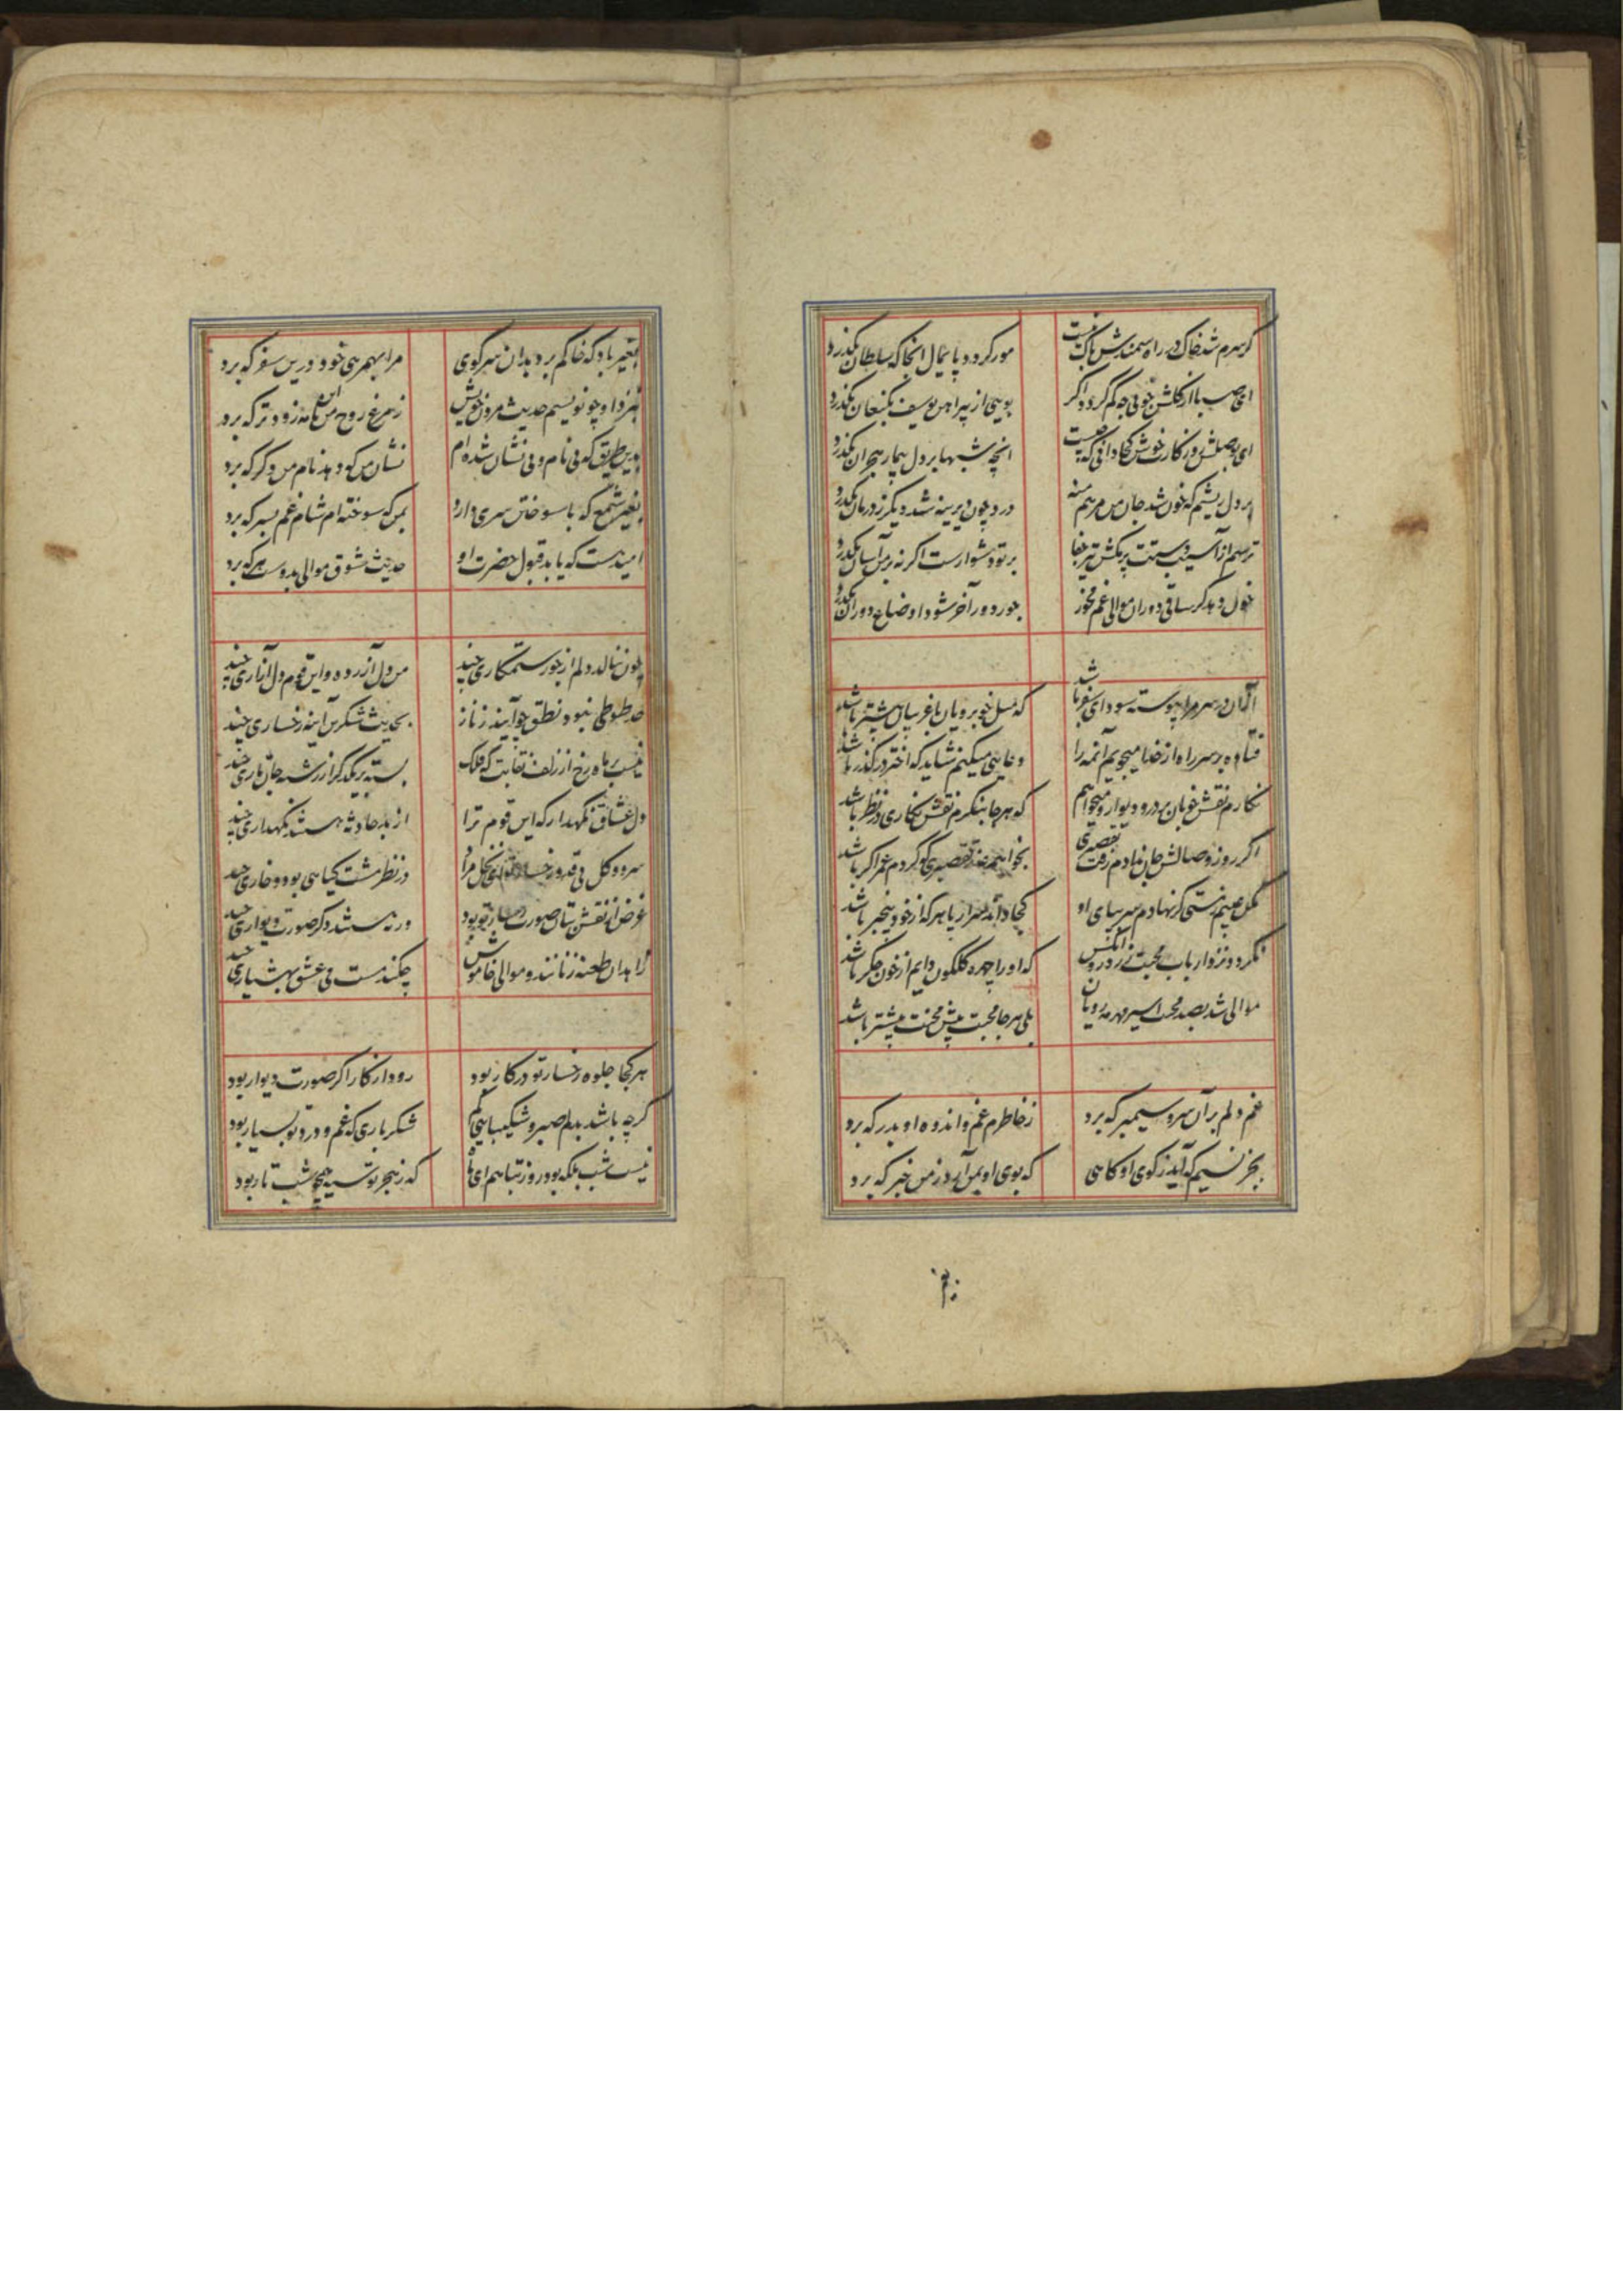 گر سرم شد خاک در راه سمندش باک نیست
مور گردد پایمال انجا که سلطان بگذرد
ای صبا از گلشن خوبی چه کم گردد اگر
بویی از پیراهن یوسف بکنعان بگذرد
ای بوصلش روزگارت خوش کجا دانی که چیست
انچه شبها بر دل بیمار هجران بگذرد
بر دل ریشم که خون شد جان من مرهم منه
درد چون دیرینه شد دیگر ز درمان بگذرد
ترسم از آسیب دستت بر مکش تیر جفا
بر تو دشوارست اگر نه بر من آسان بگذرد
خون دهد گر ساقی دوران موالی غم مخور
جور دور آخر شود اوضاع دوران بگذرد
از آن در سر مرا پیوسته سودای سفر باشد
که میل خوبرویان با غریبان بیشتر باشد
فتاده بر سر راه از خدا میجویم آنمه را
دعایی میکنم شاید که اختر در گذر باشد
نگارم نقش خوبان بر در و دیوار و میخواهم
که هر جا بنگرم نقش نگاری در نظر باشد
اگر روز وصالش جان ندادم رفت تقصیری
بخواهم عذر تقصیری که کردم عمر اگر باشد
مکن عیبم ز مستی گر نهادم سر بپای او
کجا داند سر از پا هر که از خود بیخبر باشد
نگردد نزد ارباب محبت زرد رو آنکس
که او را چهره گلگون دایم از خون جگر باشد
موالی شد بصد محنت اسیر مهر مه رویان
بلی هر جا محبت بیش محنت بیشتر باشد
غم دلم بر آن سرو سیمبر که برد
ز خاطرم غم و اندوه او بدر که برد
بجز نسیم که آید ز کوی او گاهی
که بوی او بمن آرد ز من خبر که برد
بغیر باد که خاکم برد بدان سر کوی
مرا بهمرهی خود درین سفر که برد
چو نویسم حدیث خویش
ز مرغ روح من این نامه زودتر که برد
بدین طریق که بی نام و بی نشان شده ام
نشان من که دهد نام من دگر که برد
بغیر شمع که با سوختن سری دارد
بمن که سوخته ام شام غم بسر که برد
امید هست که یابد قبول حضرت او
حدیث شوق موالی بدوست هر که برد
چون ننالد دلم از جور ستمکاری چند
من دل آزرده و این قوم دل آزاری چند
حد طوطی نبود نطق چو آیند ز ناز
بحدیث شکرین آینه رخساری چند
نیست بر ماه رخ از زلف نقابت که فلک
بسته بر یکدگر از رشته جان تاری چند
دل عشاق نگهدار که این قوم ترا
از بد حادثه هستند نگهداری چند
سرو و گل بی قد و رخسار تو ای نخل مراد
در نظر مشت گیاهی بود و خاری چند
غرض از نقش بتان صورت زیبای تو بود
ورنه هستند دگر صورت دیواری چند
زاهدان طعنه زنانند و موالی خاموش
چکند مست می عشق بهشیاری چند
هر کجا جلوه رخسار تو در کار بود
رود از کار اگر صورت دیوار بود
گر چه باشد بدلم صبر و شکیبایی کم
شکر باری که غم و درد تو بسیار بود
نیست شب بلکه بود روز تباهم ای ماه
که ز هجر تو سیه همچو شب تار بود
بغیر